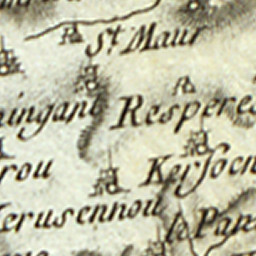 St Maur
ingant Resperes
rou Kersoen
erusennou
le Pan